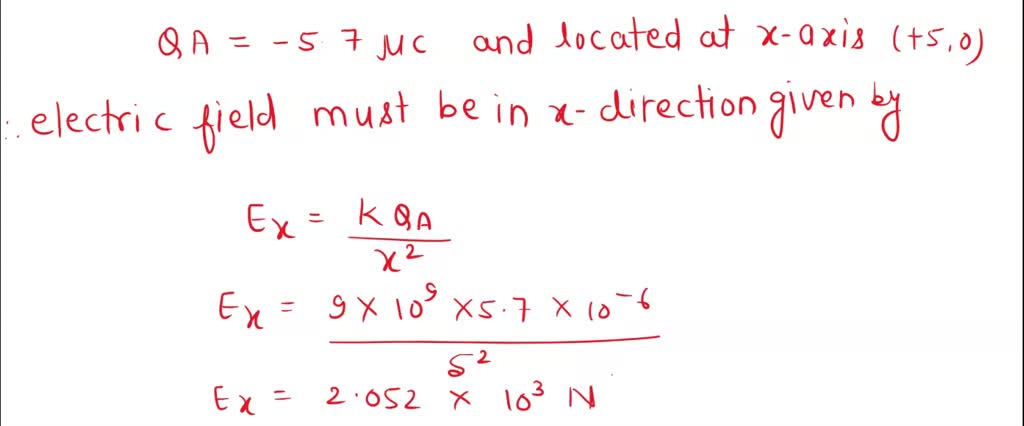 QA = -5.7 μc and located at x-axis (+5,0)
∴ electric field must be in x-direction given by
Ex = K QA / x²
Ex = 9 × 10⁹ × 5.7 × 10⁻⁶ / 5²
Ex = 2.052 × 10³ N